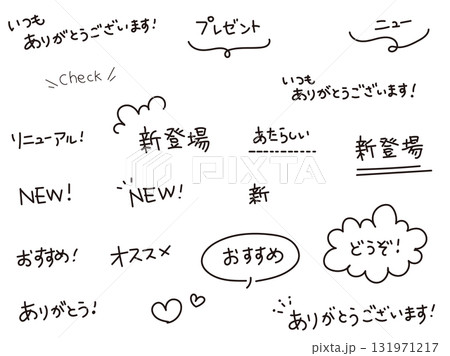 いつも
ありがとうございます!
プレゼント
ニュー
Check
いつも
ありがとうございます!
リニューアル!
新登場
あたらしい
新登場
NEW!
NEW!
新
おすすめ!
オススメ
おすすめ
どうぞ!
ありがとう!
ありがとうございます!
PIXTA
pixta.jp - 131971217